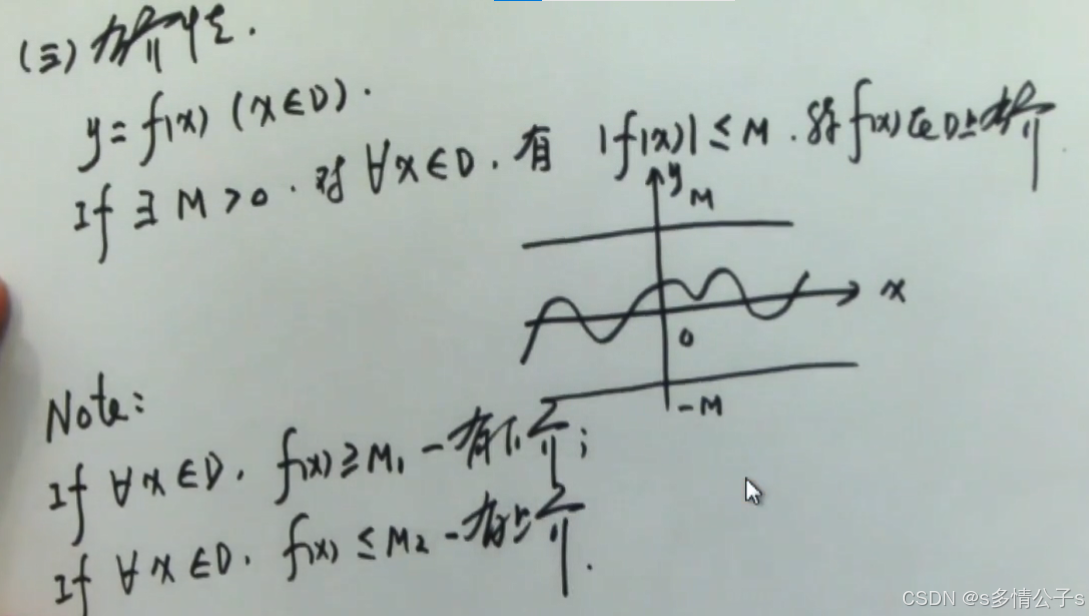 (三) 有界性.
y = f(x) (x∈D).
If ∃ M > 0. 对 ∀x∈D. 有 |f(x)| ≤ M. 称 f(x) 在 D 上有界
y
M
x
0
-M
Note:
If ∀x∈D. f(x) ≥ M₁ - 有下界;
If ∀x∈D. f(x) ≤ M₂ - 有上界.
CSDN @s多情公子s